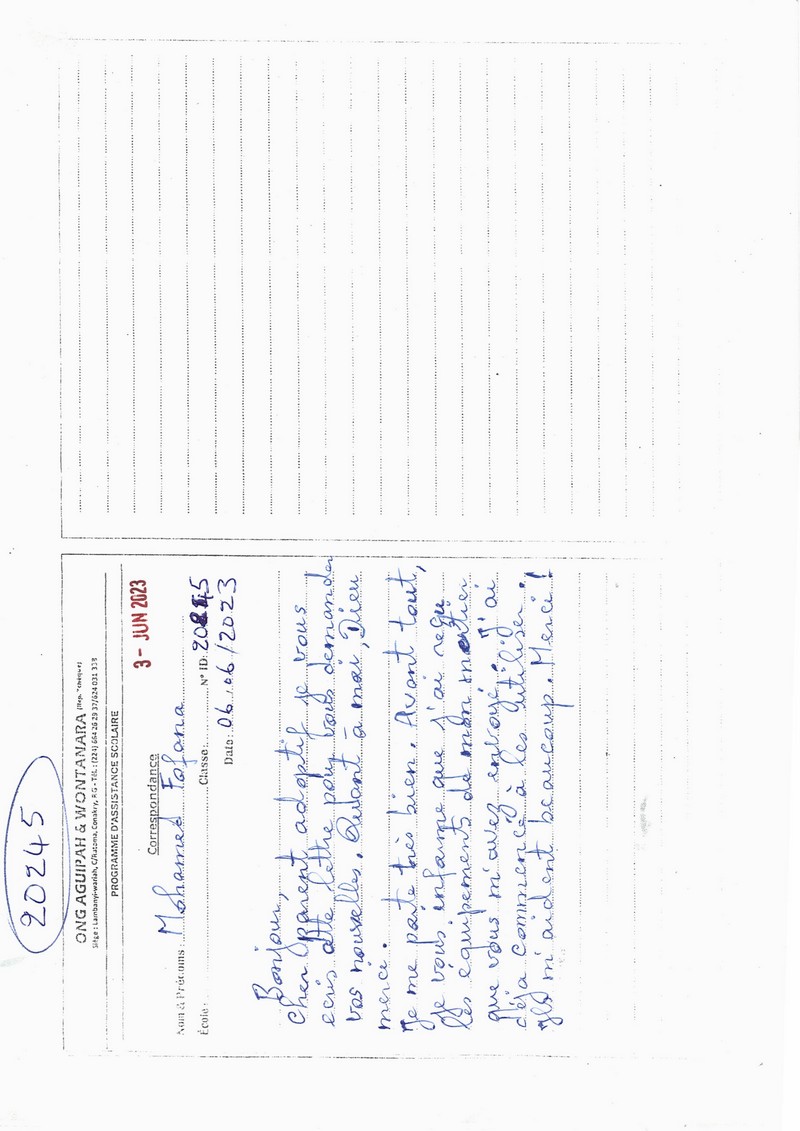 20245
ONG AGUIPAH & WONTANARA (Rep. Tchèque)
Siège : Lambanyi-wariah, C/Ratoma, Conakry, RG - Tél. : (224) 664 26 29 37/624 031 338
PROGRAMME D'ASSISTANCE SCOLAIRE
3 - JUN 2023
Correspondance
Nom & Prénoms : Mohamed Fofana
École : Classe : N° ID: 20245
Date : 06/06/2023
Bonjour,
Cher Parent adoptif je vous
ecris cette lettre pour vous demander
vos nouvelles. Quant à moi, Dieu
merce.
Je me porte très bien. Avant tout,
Je vous informe que j'ai reçu
les equipements de mon metier
que vous m'avez envoyé. J'ai
déjà commencé à les utiliser.
Ils m'aident beaucoup. Merci !